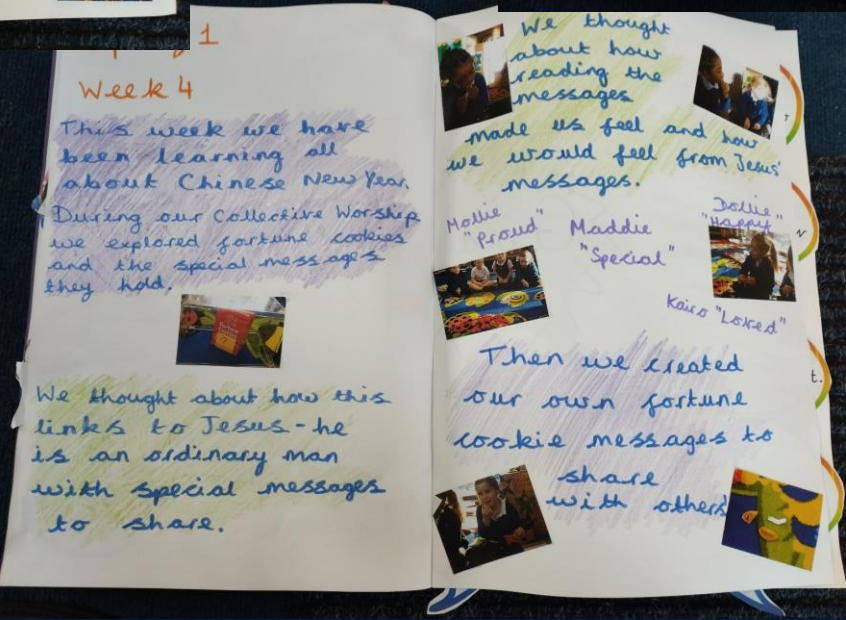 1
Week 4
This week we have
been learning all
about Chinese New Year.
During our Collective Worship
we explored fortune cookies
and the special messages
they hold.
We thought about how this
links to Jesus - he
is an ordinary man
with special messages
to share.
We thought
about how
reading the
messages
made us feel and how
we would feel from Jesus'
messages.
Mollie
"Proud"
Maddie
"Special"
Dollie
"Happy"
Kairo "Loved"
Then we created
our own fortune
cookie messages to
share
with others
T
N
t.